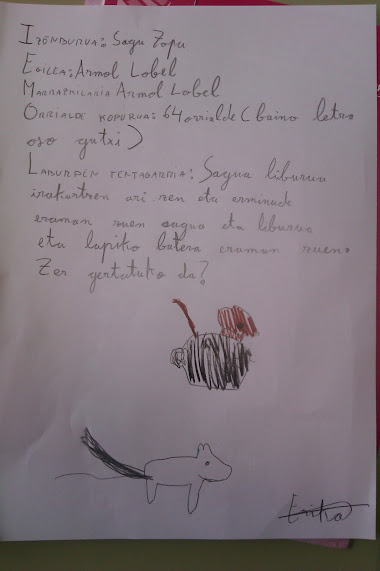 IZENBURUA: Sagu Zopa
EGILEA: Armol Lobel
MARRAZKILARIA Armol Lobel
ORRIALDE KOPURUA: 64 orrialde (baino letra
oso gutxi)
LABURPEN TENTAGARRIA: Sagua liburua
irakurtzen ari zen eta erminude
eraman zuen sagua eta liburua
eta lapiko batera eraman zuen.
Zer gertatuko da?
Erika